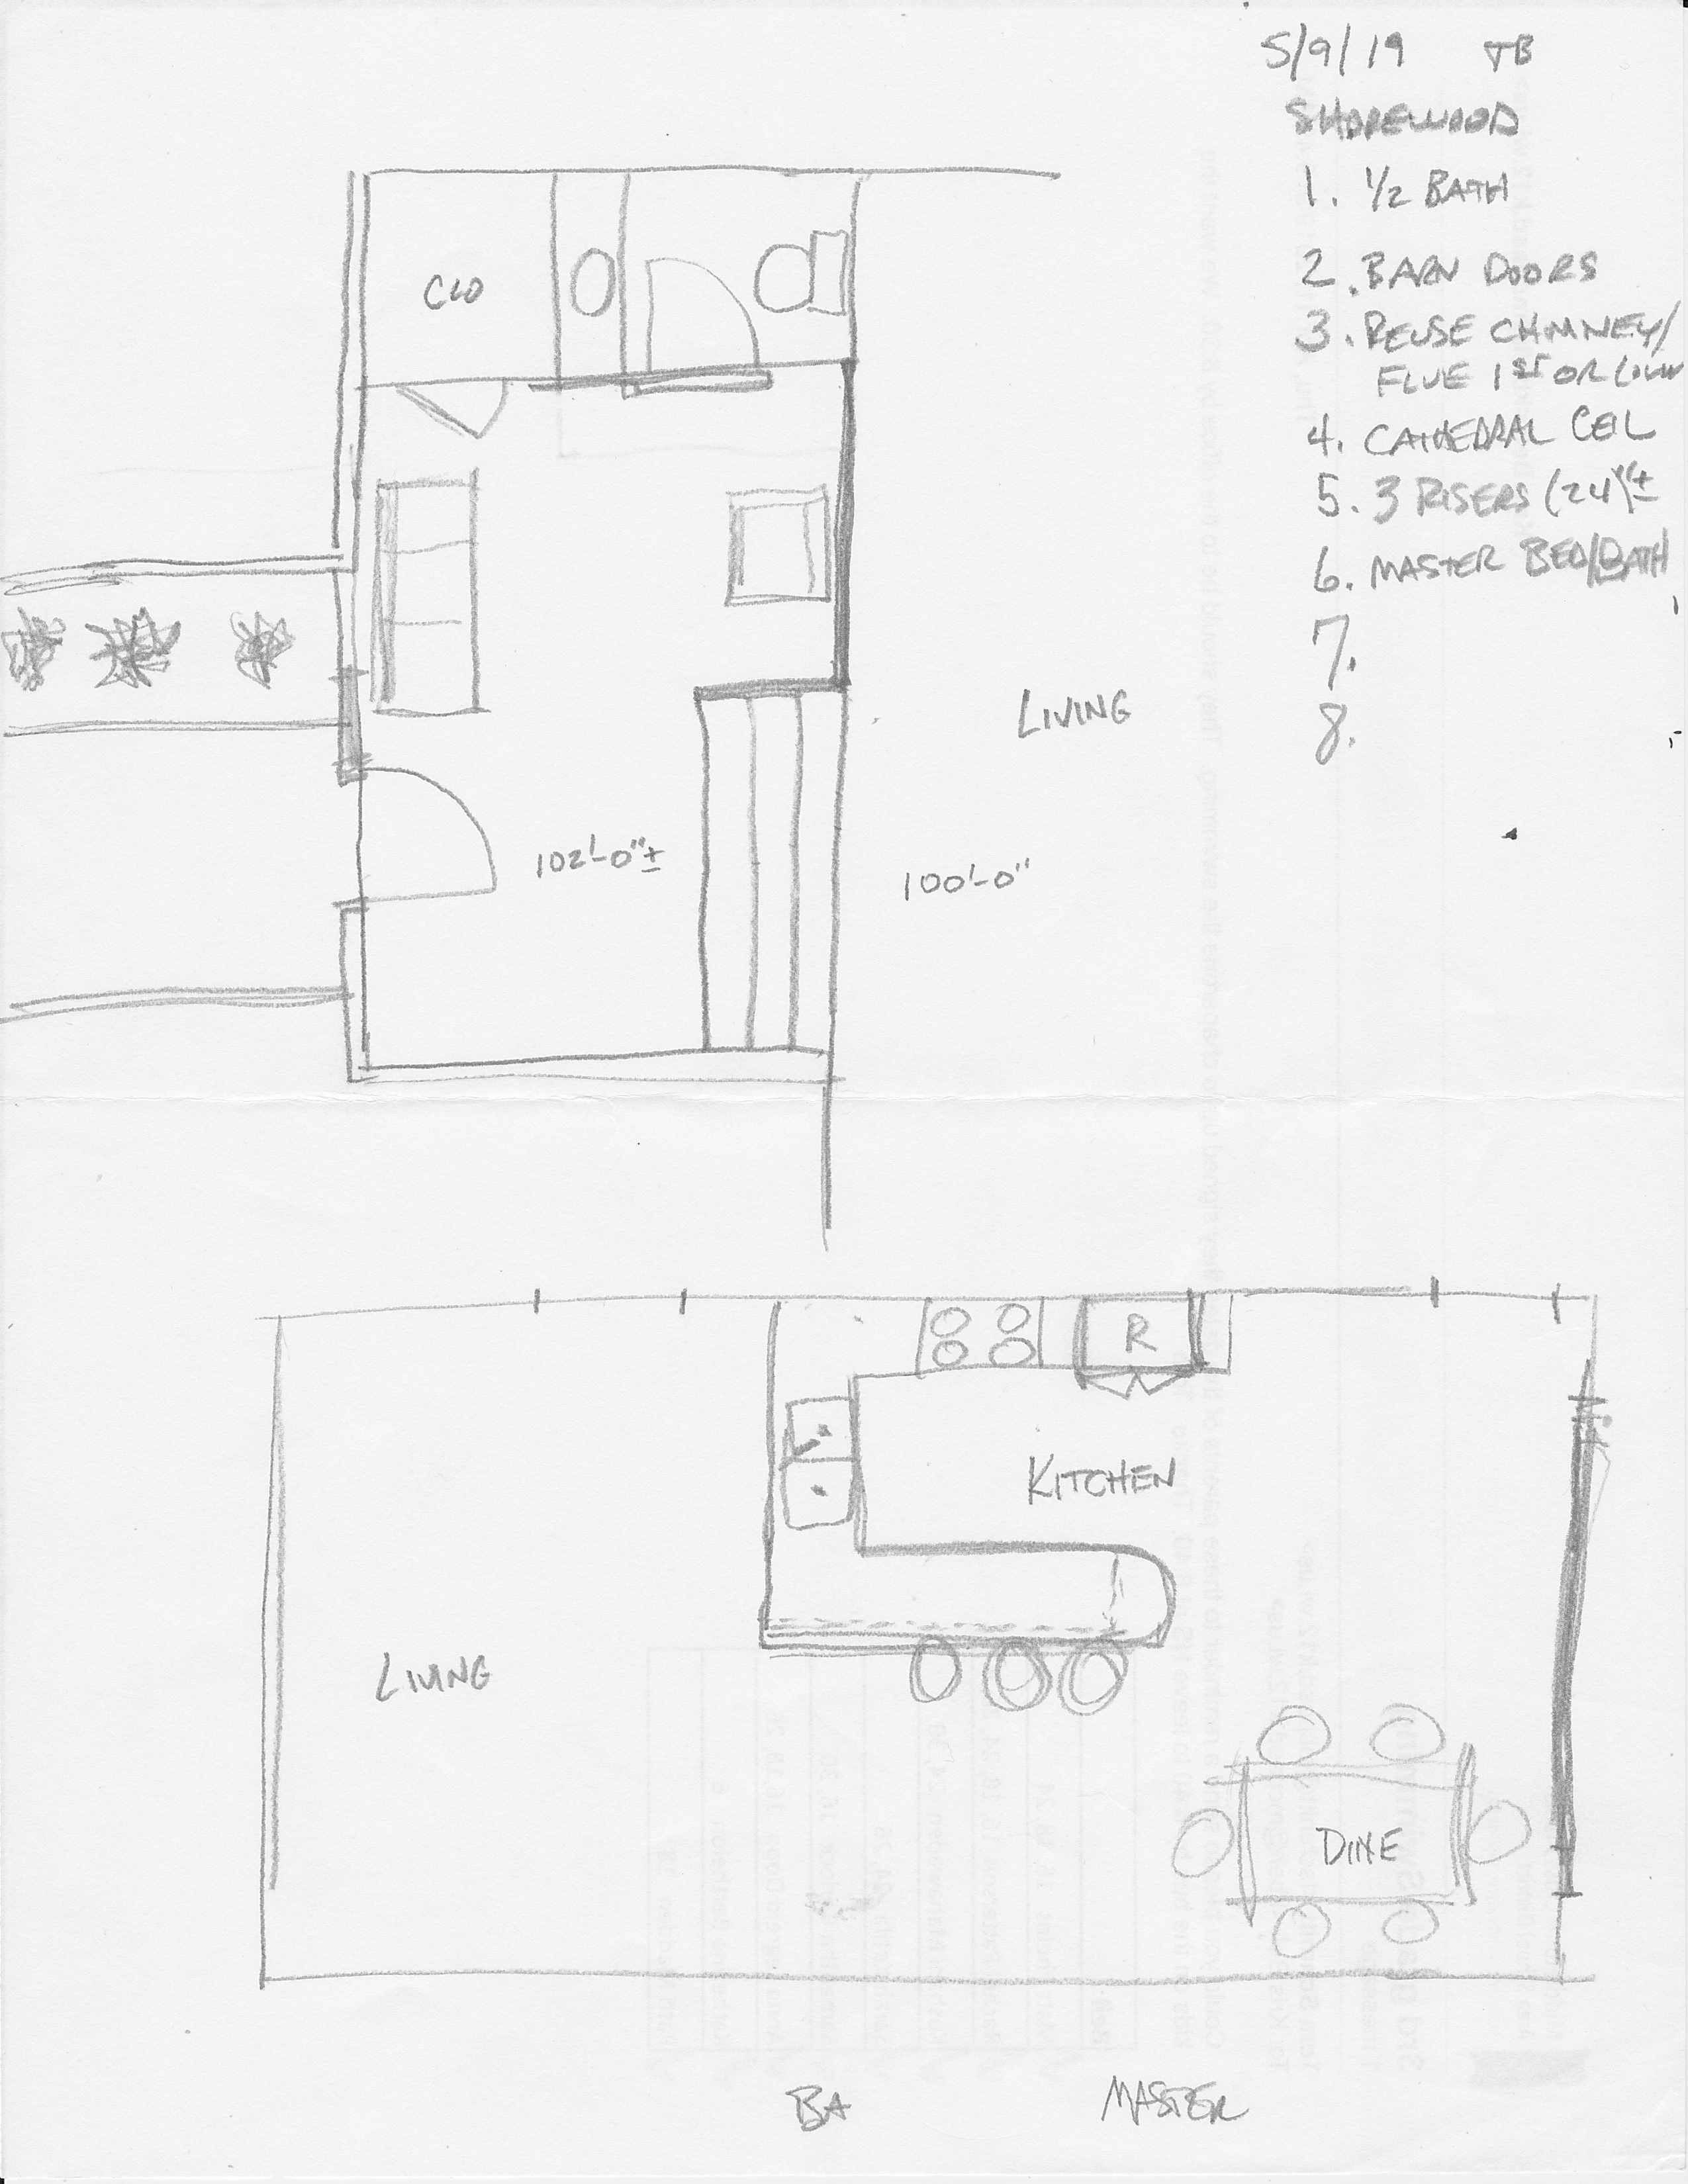 5/9/19 TB
SHOREWOOD
1. 1/2 BATH
2. BARN DOORS
3. REUSE CHIMNEY/
FLUE 1ST OR
4. CATHEDRAL CEIL
5. 3 RISERS (24)"±
6. MASTER BED/BATH
7.
8.
CLO
LIVING
102'-0"±
100'-0"
R
KITCHEN
LIVING
DINE
BA
MASTER